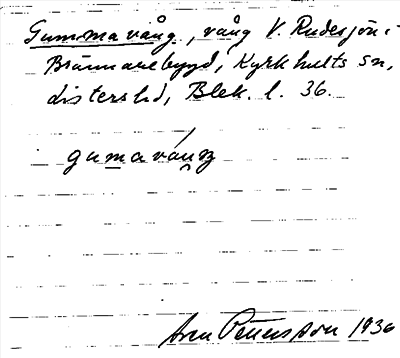 Gummavång, vång V. Rudesjön i
Brännarebygd, Kyrkhults sn,
Listers hd, Blek. l. 36.
gumaváuŋ
Pettersson 1936